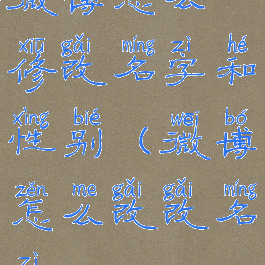 xiū gǎi míng zì hé
修改名字和
xìng bié wēi bó
性别(微博
zěn me gǎi gǎi míng
怎么改改名
zì